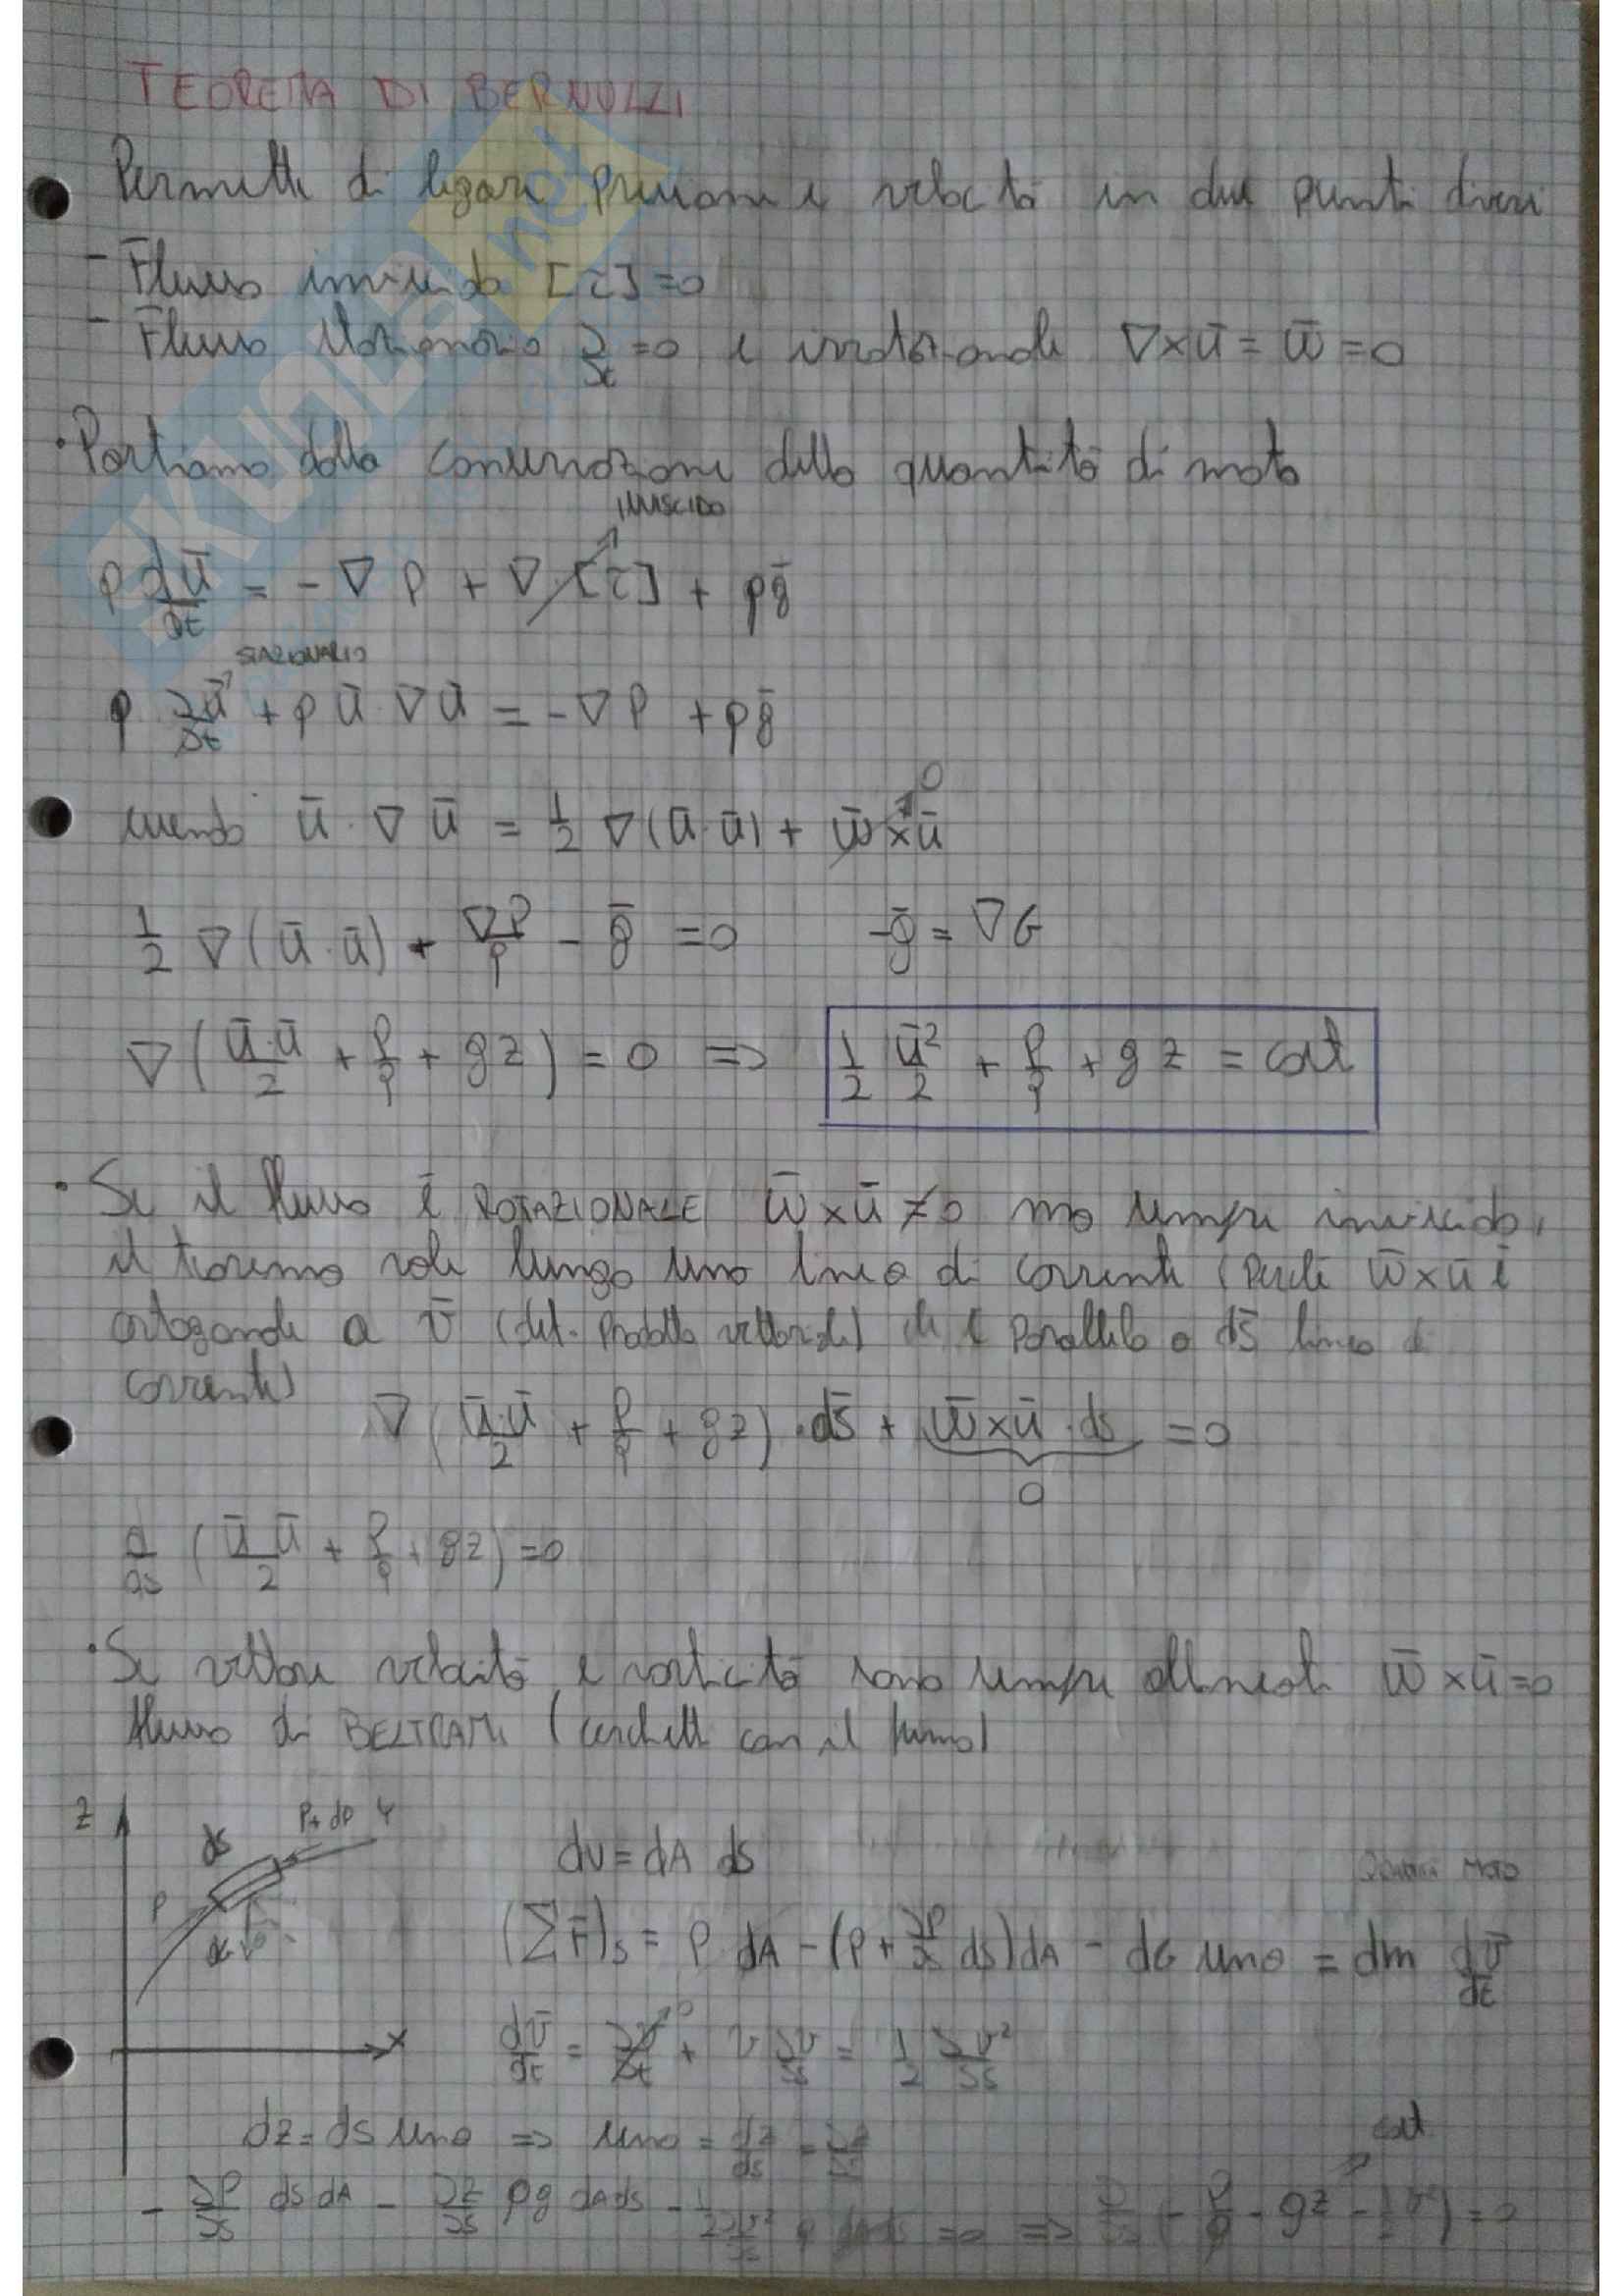 TEOREMA DI BERNULLI
Permette di legare pressione e velocità in due punti diversi
- Flusso inviscido [τ] = 0
- Flusso stazionario ∂/∂t = 0 e irrotazionale ∇×ū = w̄ = 0
• Partiamo dalla conservazione della quantità di moto
INVISCIDO
ρ dū/dt = -∇P + ∇·[τ] + ρḡ
STAZIONARIO
ρ ∂ū/∂t + ρ ū·∇ū = -∇P + ρḡ
0
essendo ū·∇ū = 1/2 ∇(ū·ū) + w̄×ū
1/2 ∇(ū·ū) + ∇P/ρ - ḡ = 0 -ḡ = ∇G
∇(ū·ū/2 + P/ρ + gz) = 0 => 1/2 ū²/2 + P/ρ + gz = cost
• Se il flusso è ROTAZIONALE w̄×ū ≠ 0 ma sempre inviscido,
il teorema vale lungo una linea di corrente (perché w̄×ū è
ortogonale a v̄ (def. prodotto vettoriale) che è parallelo a ds̄ linea di
corrente)
∇(ū·ū/2 + P/ρ + gz)·ds̄ + w̄×ū·ds = 0
0
d/ds (ū·ū/2 + P/ρ + gz) = 0
• Se vettore velocità e vorticità sono sempre allineati w̄×ū = 0
flusso di BELTRAMI (cerchietti con il fumo)
z P+dP ψ
ds
dV = dA ds
P
dG
(∑F̄)s = P dA - (P + ∂P/∂s ds)dA - dG senθ = dm dv̄/dt
x
dv̄/dt = ∂v/∂t + v ∂v/∂s = 1/2 ∂v²/∂s
0
dz = ds senθ => senθ = dz/ds = ∂z/∂s
cost
- ∂P/∂s ds dA - ∂z/∂s ρg dA ds - 1/2 ∂v²/∂s ρ dA ds = 0 => ∂/∂s (- P/ρ - gz - 1/2 v²) = 0
SKUOLA.net